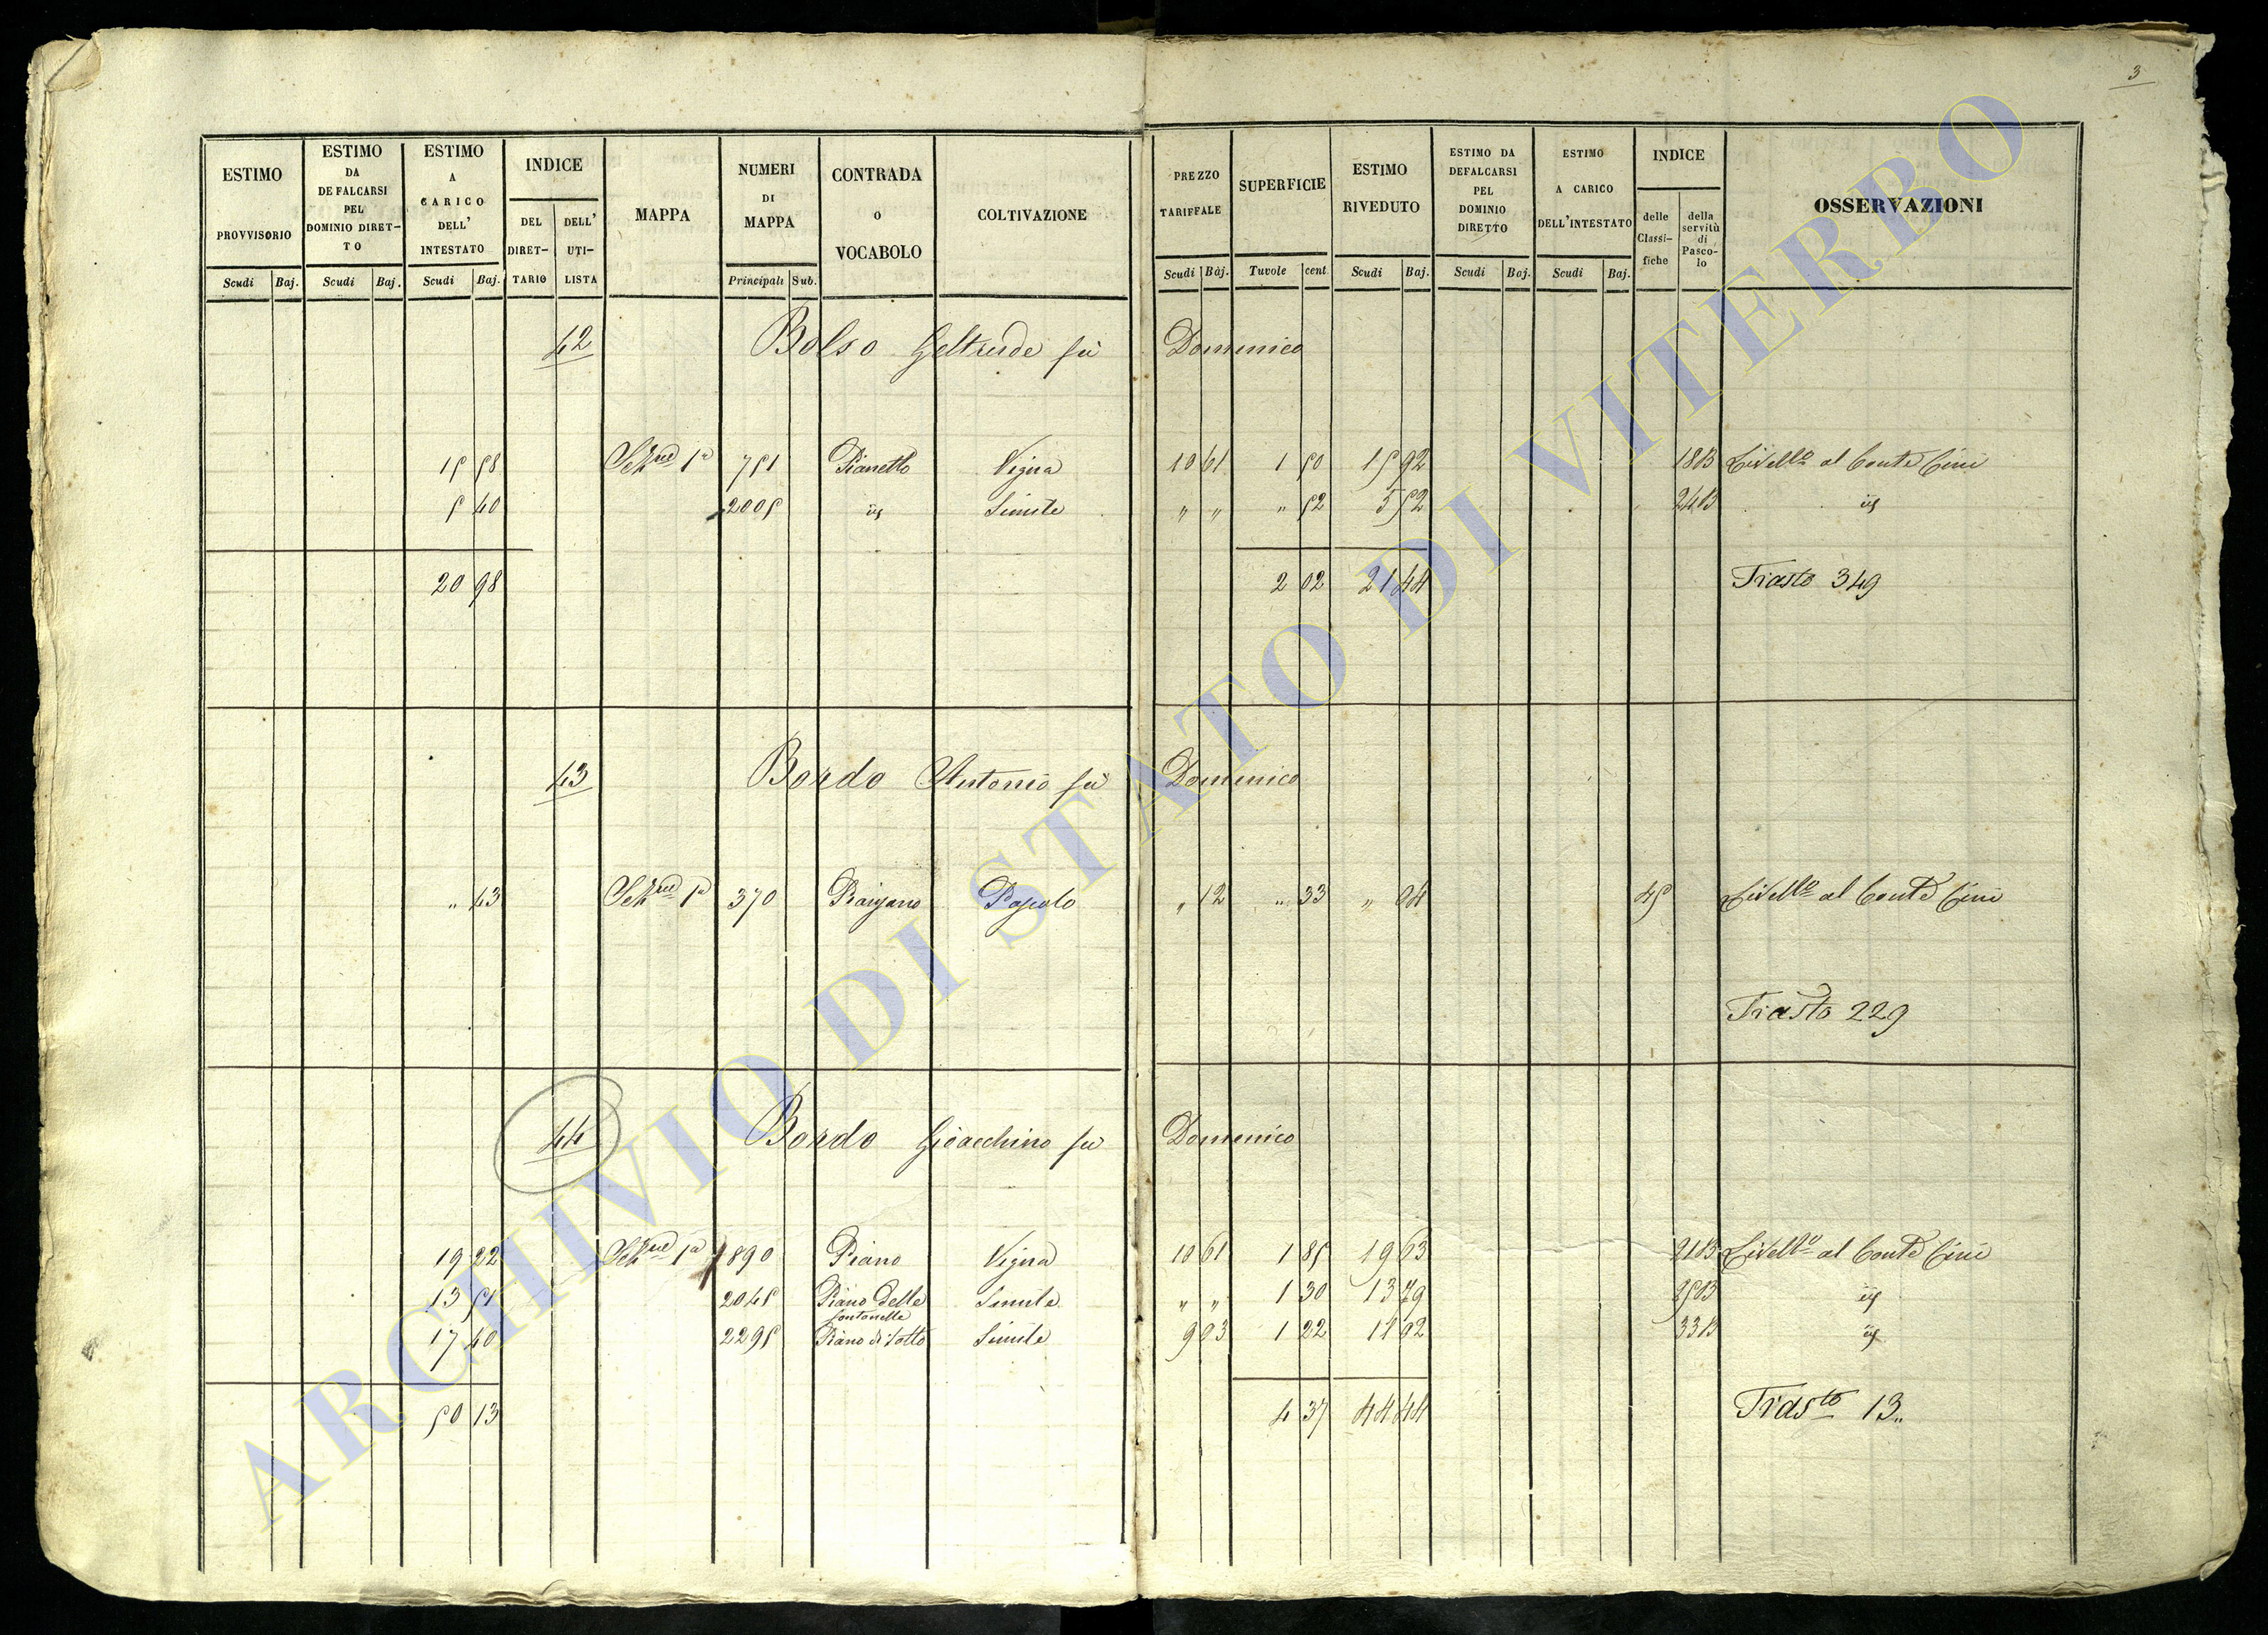 3
ESTIMO PROVVISORIO
ESTIMO DA DEFALCARSI PEL DOMINIO DIRET-TO
ESTIMO A CARICO DELL' INTESTATO
INDICE
DEL DIRET-TARIO
DELL' UTI-LISTA
MAPPA
NUMERI DI MAPPA
CONTRADA O VOCABOLO
COLTIVAZIONE
PREZZO TARIFFALE
SUPERFICIE
ESTIMO RIVEDUTO
ESTIMO DA DEFALCARSI PEL DOMINIO DIRETTO
ESTIMO A CARICO DELL'INTESTATO
INDICE
delle Classi-fiche
della servitù di Pasco-lo
OSSERVAZIONI
Scudi Baj. Scudi Baj. Scudi Baj. Principali Sub. Scudi Baj. Tavole cent. Scudi Baj. Scudi Baj. Scudi Baj.
42 Bolso Geltrude fù Domenico
15 58 1ª 751 Pianetto Vigna 10 61 1 50 15 92 18B Livello al Conte Cini
5 40 2005 id Simile " " " 52 5 52 24B id
20 98 2 02 21 44 Trasto 349
43 Bordo Antonio fù Domenico
" 43 1ª 370 Pascolo " 12 " 33 " 04 45 Livello al Conte Cini
Trasto 229
44 Bordo Gioacchino fù Domenico
19 22 1ª 1890 Piano Vigna 10 61 1 85 19 63 21B Livello al Conte Cini
13 51 2045 Piano delle fontanelle Simile " " 1 30 13 79 25B id
17 40 2295 Piano di sotto Simile 9 03 1 22 11 02 33B id
50 13 4 37 44 44 Trasto 13..
ARCHIVIO DI STATO DI VITERBO